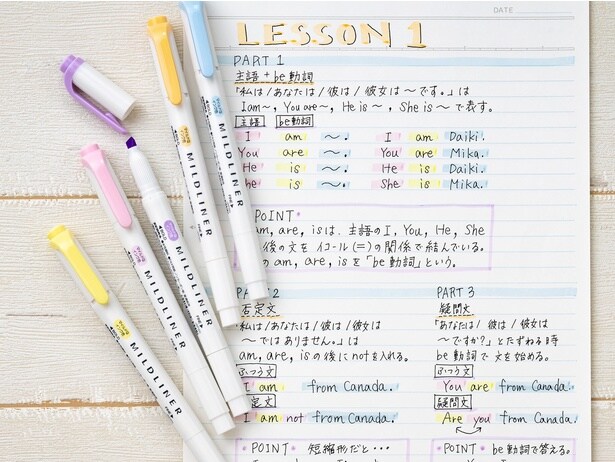 DATE
LESSON 1
PART 1
主語 + be動詞
「私は/あなたは/彼は/彼女は 〜です。」は
I am〜, You are〜, He is〜, She is〜 で表す。
主語 be動詞
I am 〜. I am Daiki.
You are 〜. You are Mika.
He is 〜. He is Daiki.
She is 〜. She is Mika.
POINT*
am, are, isは、主語の I, You, He, She
後の文を イコール(=)の関係で結んでいる。
の am, are, isを「be動詞」という。
2
否定文
私は/あなたは/彼は/彼女は
〜ではありません。」は
am, are, isの後にnotを入れる。
ふつう文
I am from Canada.
定文
I am not from Canada.
*POINT* 短縮形だと・・・
PART 3
疑問文
「あなたは/彼は/彼女は
〜ですか?」とたずねる時
be動詞で文を始める。
ふつう文
You are from Canada.
疑問文
Are you from Canada.
*POINT* be動詞で答える。
MILDLINER
MILDLINER
MILDLINER
MILDLINER
MILDLINER